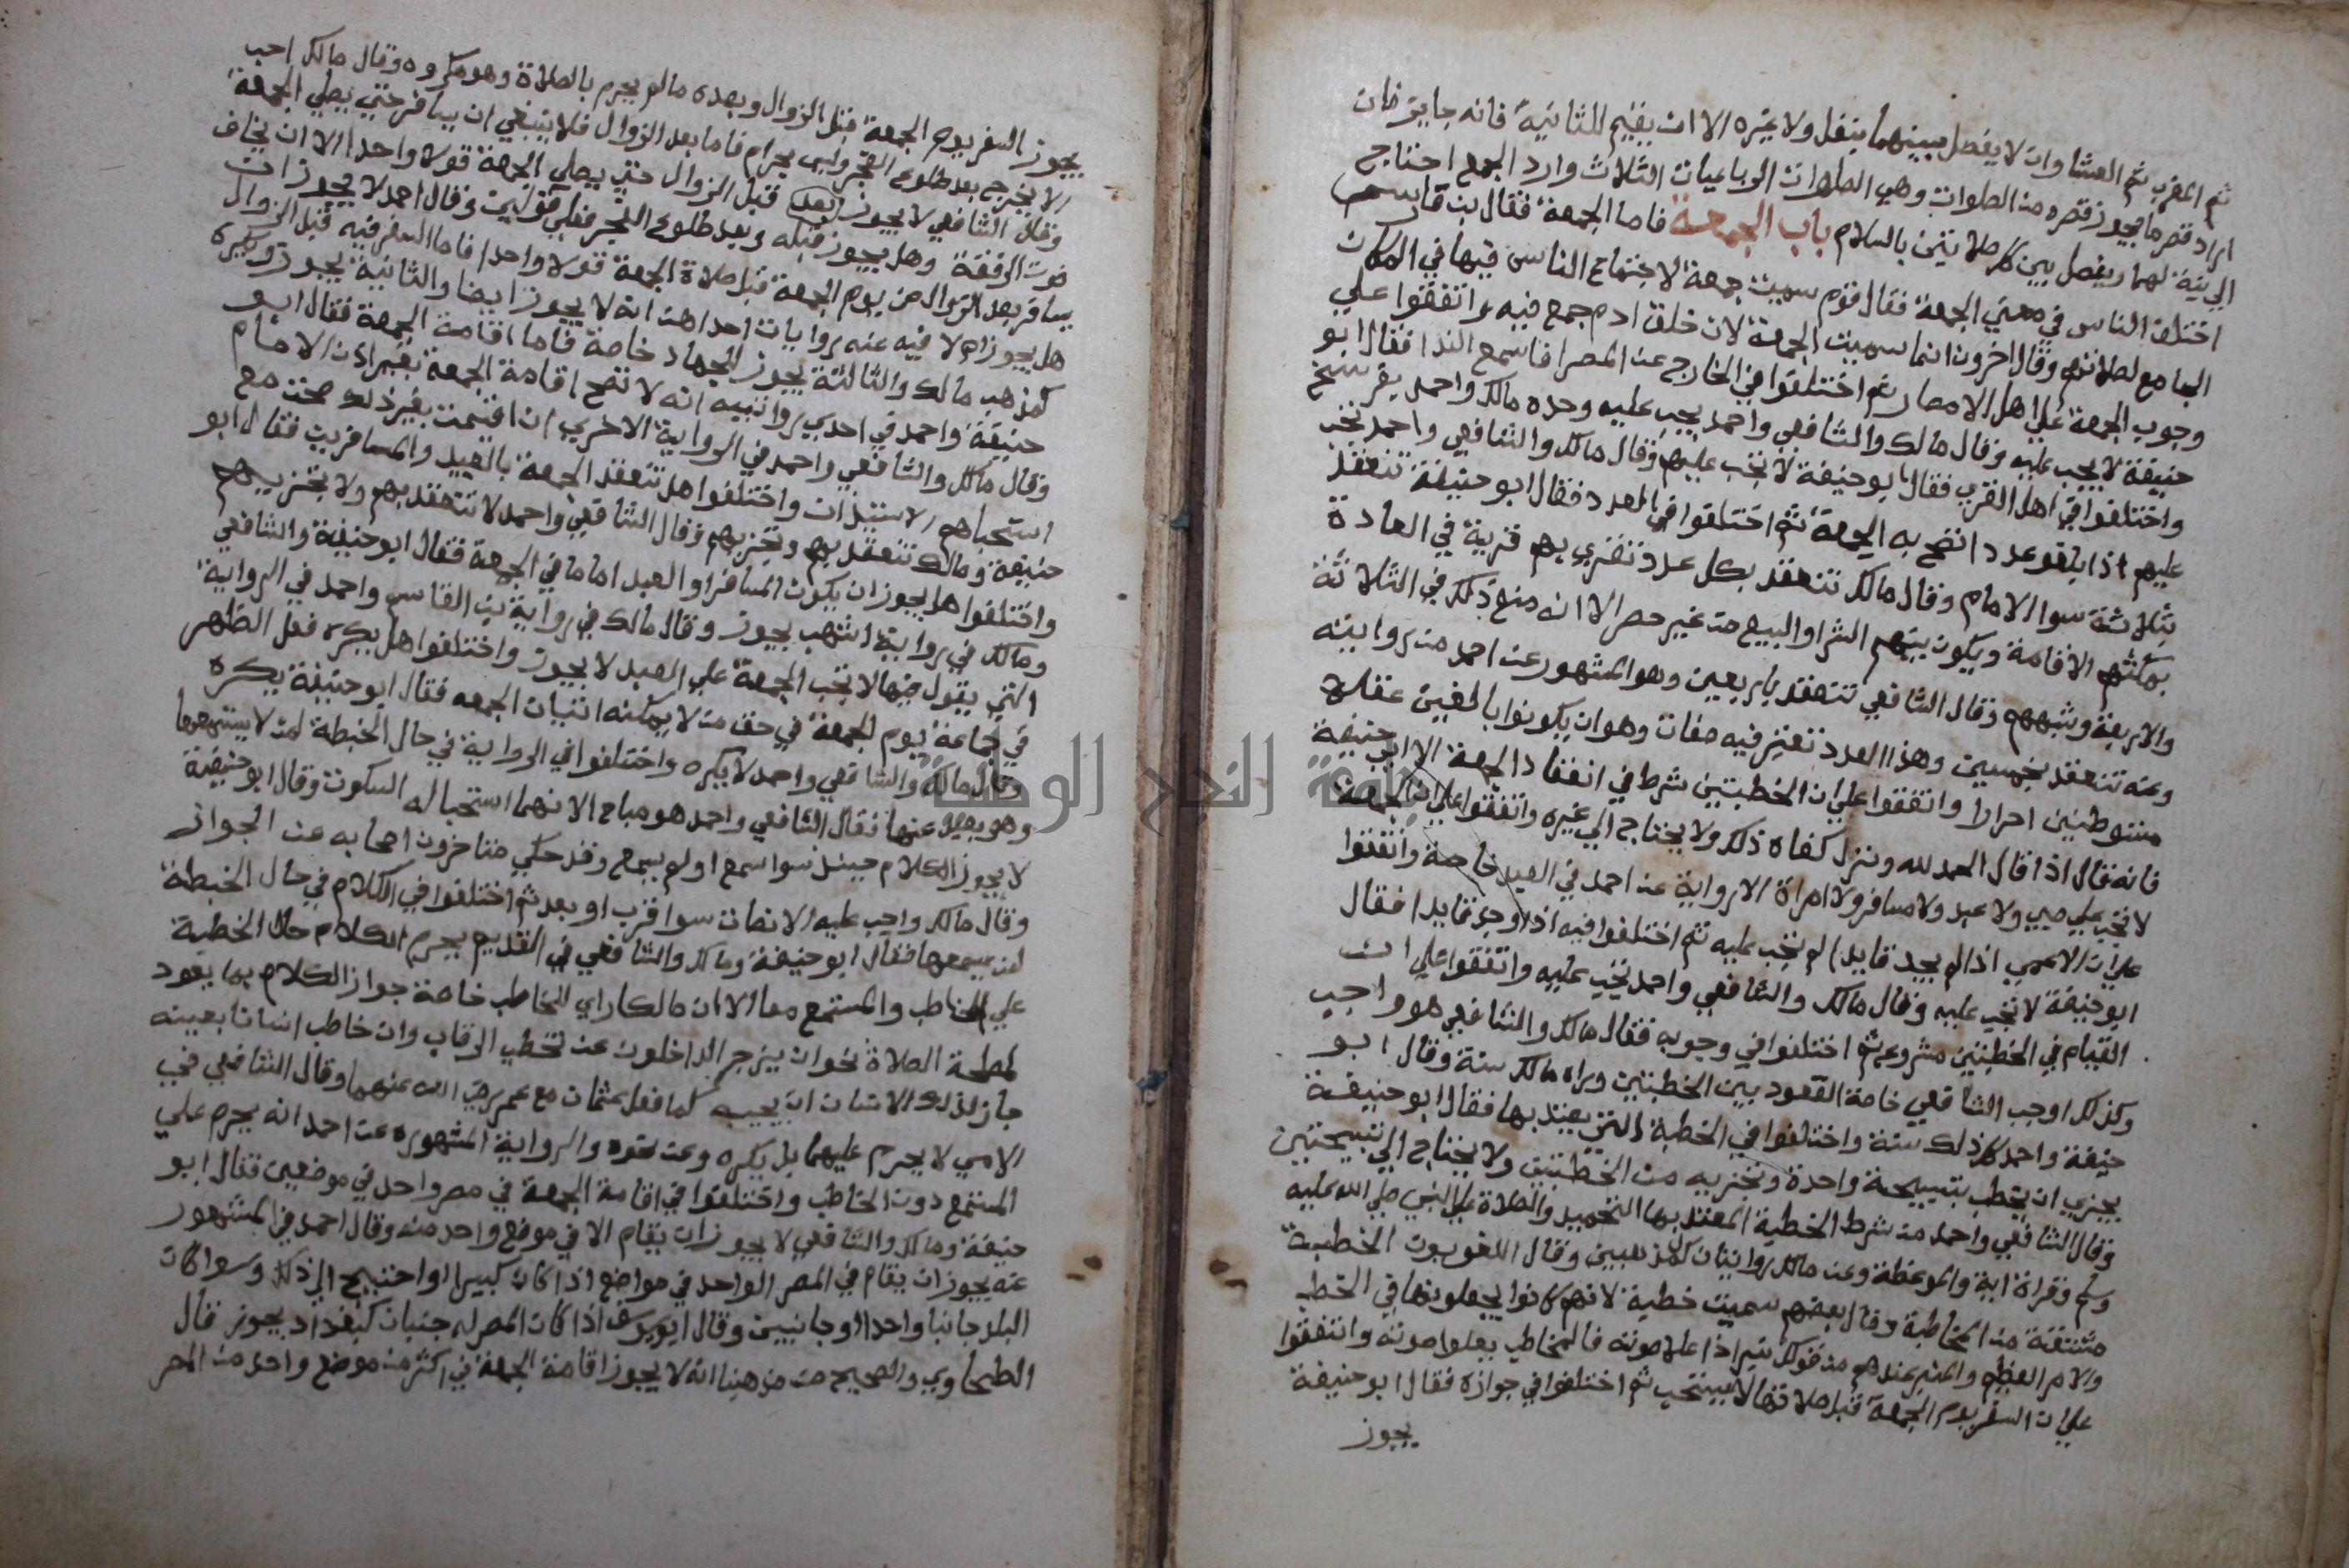 ثم المغرب ثم العشا وان لا يفصل بينهما بنفل ولا غيره الا ان يقيم للثانية فانه جايز فان
اراد قصر ما يجوز قصره من الصلوات وهي الصلوات الرباعيات الثلاث واراد الجمع احتاج
الي نية لهما ويفصل بين كل صلاتين بالسلام باب الجمعة فاما الجمعة فقال بن فارس
اختلف الناس في معني الجمعة فقال قوم سميت جمعة لاجتماع الناس فيها في المكان
الجامع لصلاتهم وقال اخرون انما سميت الجمعة لان خلق ادم جمع فيه واتفقوا علي
وجوب الجمعة علي اهل الامصار ثم اختلفوا في الخارج عن المصر اذا سمع الندا فقال ابو
حنيفة لا يجب عليه وقال مالك والشافعي واحمد يجب عليه وحده مالك واحمد بفرسخ
واختلفوا في اهل القري فقال ابو حنيفة لا تجب عليهم وقال مالك والشافعي واحمد تجب
عليهم اذا بلغو عددا تصح به الجمعة ثم اختلفوا في العدد فقال ابو حنيفة تنعقد
بثلاثة سوا الامام وقال مالك تنعقد بكل عدد تتقري بهم قرية في العادة
يمكنهم الاقامة ويكون بينهم الشرا والبيع من غير حصر الا انه منع ذلك في الثلاثة
والاربعة وشبههم وقال الشافعي تنعقد باربعين وهو المشهور عن احمد من روايتيه
وعنه تنعقد بخمسين وهذا العدد تعتبر فيه صفات وهو ان يكونوا بالغين عقلا
مستوطنين احرارا واتفقوا علي ان الخطبتين شرط في انعقاد الجمعة الا ابي حنيفة
فانه قال اذا قال الحمد لله ونزل كفاه ذلك ولا يحتاج الي غيره واتفقوا علي ان الجمعة
لا تجب علي صبي ولا عبد ولا مسافر ولا امراة الا رواية عن احمد في العبد خاصة واتفقوا
علي ان الاعمي اذا لم يجد قايدا لم تجب عليه ثم اختلفوا فيه اذا وجد قايدا فقال
ابو حنيفة لا تجب عليه وقال مالك والشافعي واحمد تجب عليه واتفقوا علي ان
القيام في الخطبتين مشروع ثم اختلفوا في وجوبه فقال مالك والشافعي هو واجب
وكذلك اوجب الشافعي خاصة القعود بين الخطبتين وراه مالك سنة وقال ابو
حنيفة واحمد كل ذلك سنة واختلفوا في الخطبة التي يعتد بها فقال ابو حنيفة
يجزي ان يخطب بتسبيحة واحدة وتجزيه من الخطبتين ولا يحتاج الي تسبيحتين
وقال الشافعي واحمد من شرط الخطبة المعتد بها التحميد والصلاة علي النبي صلي الله عليه
وسلم وقراة اية والموعظة وعن مالك روايتان كالمذهبين وقال اللغويون الخطبة
مشتقة من المخاطبة وقال بعضهم سميت خطبة لانهم كانوا يجعلونها في الخطب
والامر العظيم والمنبر عندهم من قولك نبر اذا علا صوته فالمخاطب يعلوا صوته واتفقوا
علي ان السفر يوم الجمعة قبل صلاتها لا يستحب ثم اختلفوا في جوازه فقال ابو حنيفة
يجوز
يجوز السفر يوم الجمعة قبل الزوال وبعده ما لم يحرم بالصلاة وهو مكروه وقال مالك احب
الا يخرج بعد طلوع الفجر وليس بحرام فاما بعد الزوال فلا ينبغي ان يسافر حتي يصلي الجمعة
وقال الشافعي لا يجوز بعد قبل الزوال حتي يصلي الجمعة قولا واحدا الا ان يخاف
فوت الرفقة وهل يجوز قبله وبعد طلوع الفجر فعلي قولين وقال احمد لا يجوز ان
يسافر بعد الزوال من يوم الجمعة قبل صلاة الجمعة قولا واحدا فاما السفر فيه قبل الزوال
هل يجوز ام لا فيه عنه روايات احداهن انه لا يجوز ايضا والثانية يجوز ويكره
كمذهب مالك والثالثة يجوز للجهاد خاصة فاما اقامة الجمعة فقال ابو
حنيفة واحمد في احدي روايتيه انه لا تصح اقامة الجمعة بغير اذن الامام
وقال مالك والشافعي واحمد في الرواية الاخري ان اقيمت بغير ذلك صحت مع
استحبابهم الاستيذان واختلفوا هل تنعقد الجمعة بالعبيد والمسافرين فقال ابو
حنيفة ومالك تنعقد بهم وتجزيهم وقال الشافعي واحمد لا تنعقد بهم ولا تجزيهم
واختلفوا هل يجوز ان يكون المسافر او العبد اماما في الجمعة فقال ابو حنيفة والشافعي
ومالك في رواية اشهب يجوز وقال مالك في رواية بن القاسم واحمد في الرواية
التي يقول فيها لا تجب الجمعة علي العبد لا يجوز واختلفوا هل يكره فعل الظهر
في جماعة يوم الجمعة في حق من لا يمكنه اتيان الجمعه فقال ابو حنيفة يكره
وقال مالك والشافعي واحمد لا يكره واختلفوا في الرواية في حال الخطبة لمن لا يستمعها
وهو بعيد عنها فقال الشافعي واحمد هو مباح الا انهما استحبا له السكوت وقال ابو حنيفة
لا يجوز الكلام حينيذ سوا سمع او لم يسمع وقد حكي متاخرون اصحابه عنه الجواز
وقال مالك واجب عليه الانصات سوا قرب او بعد ثم اختلفوا في الكلام في حال الخطبة
لمن يسمعها فقال ابو حنيفة ومالك والشافعي في القديم يحرم الكلام حال الخطبة
علي المخاطب والمستمع معا الا ان مالكا راي للخاطب خاصة جواز الكلام بما يعود
لمصلحة الصلاة نحو ان يزجر الداخلون عن تخطي الرقاب وان خاطب انسانا بعينه
جاز لذلك الانسان ان يجيبه كما فعل عثمان مع عمر رضي الله عنهما وقال الشافعي في
الام لا يحرم عليهما بل يكره وعن نحوه والرواية المشهوره عن احمد انه يحرم علي
المستمع دون الخاطب واختلفوا في اقامة الجمعة في مصر واحد في موضعين فقال ابو
حنيفة ومالك والشافعي لا يجوز ان يقام الا في موضع واحد منه وقال احمد في المشهور
عنه يجوز ان يقام في المصر الواحد في مواضع اذا كان كبيرا واحتيج الي ذلك وسوا كان
البلد جانبا واحدا او جانبين وقال ابو يوسف اذا كان المصر له جنبان كبغداد يجوز قال
الطحاوي والصحيح من مذهبنا انه لا يجوز اقامة الجمعة في اكثر من موضع واحد من المصر